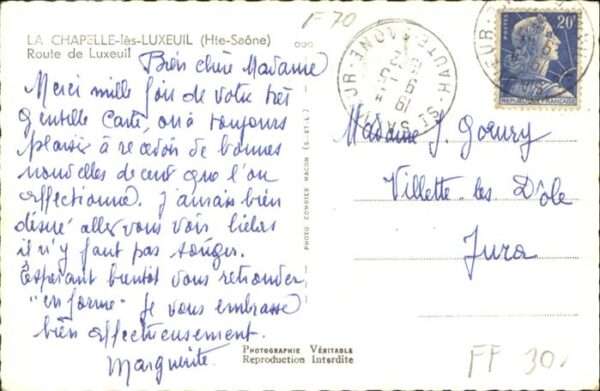 F 70
LA CHAPELLE-lès-LUXEUIL (Hte-Saône)
Route de Luxeuil
Bien chère Madame
Merci mille fois de votre très
gentille carte, on a toujours
plaisir à recevoir de bonnes
nouvelles de ceux que l'on
affectionne. J'aurais bien
désiré aller vous voir hélas
il n'y faut pas songer.
Espérant bientôt vous retrouver
"en forme" je vous embrasse
bien affectueusement.
Marguerite.
PHOTO COMBIER MACON (S.-ET-L.)
PHOTOGRAPHIE VÉRITABLE
Reproduction Interdite
HAUTE-SAONE
POSTES
20F
REPUBLIQUE FRANÇAISE
Madame J. Gœury
Villette les Dôle
Jura
FF 30